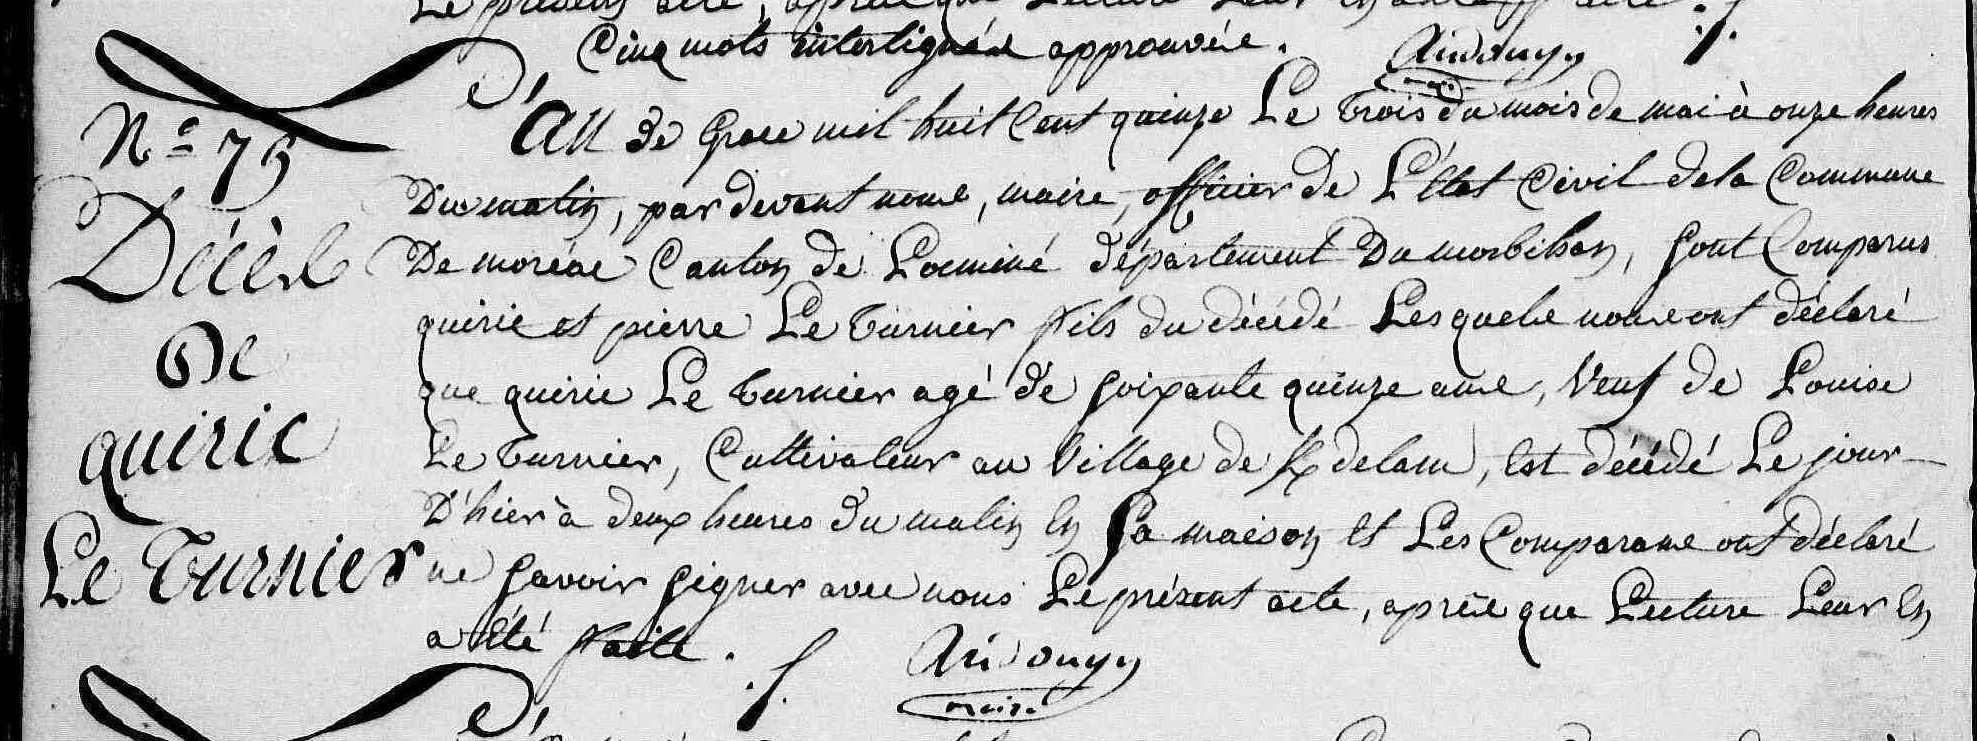 Le présent acte, après que Lecture Leur En a été faite.
Cinq mots interlignés approuvés.
N.° 75
Décès
De
quiric
Le Turnier
L'An de Grace mil huit Cent quinze Le Trois du mois de mai à onze heures
Du matin, par devant nous, maire, officier de L'État Civil de la Commune
De moréac Canton de Locminé département Du morbihan, sont Comparus
quiric et pierre Le Turnier fils du décédé Lesquels nous ont déclaré
que quiric Le Turnier agé de soixante quinze ans, Veuf de Louise
Le Turnier, Cultivateur au Village de K delam, Est décédé Le jour
D'hier à deux heures du matin En sa maison et Les Comparans ont déclaré
ne savoir signer avec nous Le présent acte, après que Lecture Leur En
a été faite.
maire